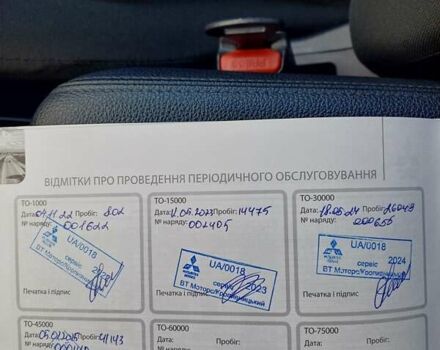 PRESS
ВІДМІТКИ ПРО ПРОВЕДЕННЯ ПЕРІОДИЧНОГО ОБСЛУГОВУВАННЯ
ТО-1000
Дата: 04.11.22 Пробіг: 802
№ наряду: 001622
UA/0018
сервіс
ВТ Моторс/Кропивницький
Печатка і підпис
ТО-15000
Дата: 11.05.2023 Пробіг: 14475
№ наряду: 002405
UA/0018
сервіс 2023
ВТ Моторс/Кропивницький
Печатка і підпис
ТО-30000
Дата: 18.05.24 Пробіг: 26043
№ наряду: 000655
UA/0018
сервіс 2024
ВТ Моторс/Кропивницький
Печатка і підпис
ТО-45000
Пробіг: 41143
№ наряду:
ТО-60000
Дата: Пробіг:
№ наряду:
ТО-75000
Дата: Пробіг:
№ наряду: